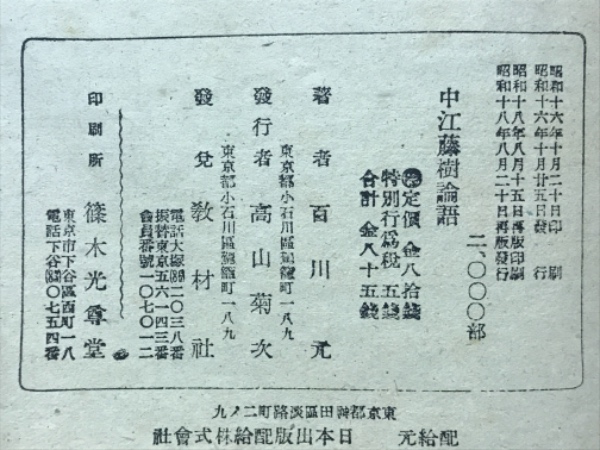 昭和十六年十月二十日印刷
昭和十六年十月廿五日發行
昭和十八年八月十五日再版印刷
昭和十八年八月二十日再版發行
中江藤樹論語
二、〇〇〇部
定價 金八拾錢
特別行爲税 五錢
合計 金八十五錢
著者 百川元
東京都小石川區駕籠町一八九
發行者 高山菊次
東京都小石川區駕籠町一八九
發兌 敎材社
電話大塚(86)二〇三八番
振替東京五六一四三番
會員番號一〇七〇一二
印刷所 篠木光尊堂
東京市下谷區西町一八
電話下谷(83)〇七五四番
東京都神田區淡路町二ノ九
配給元 日本出版配給株式會社